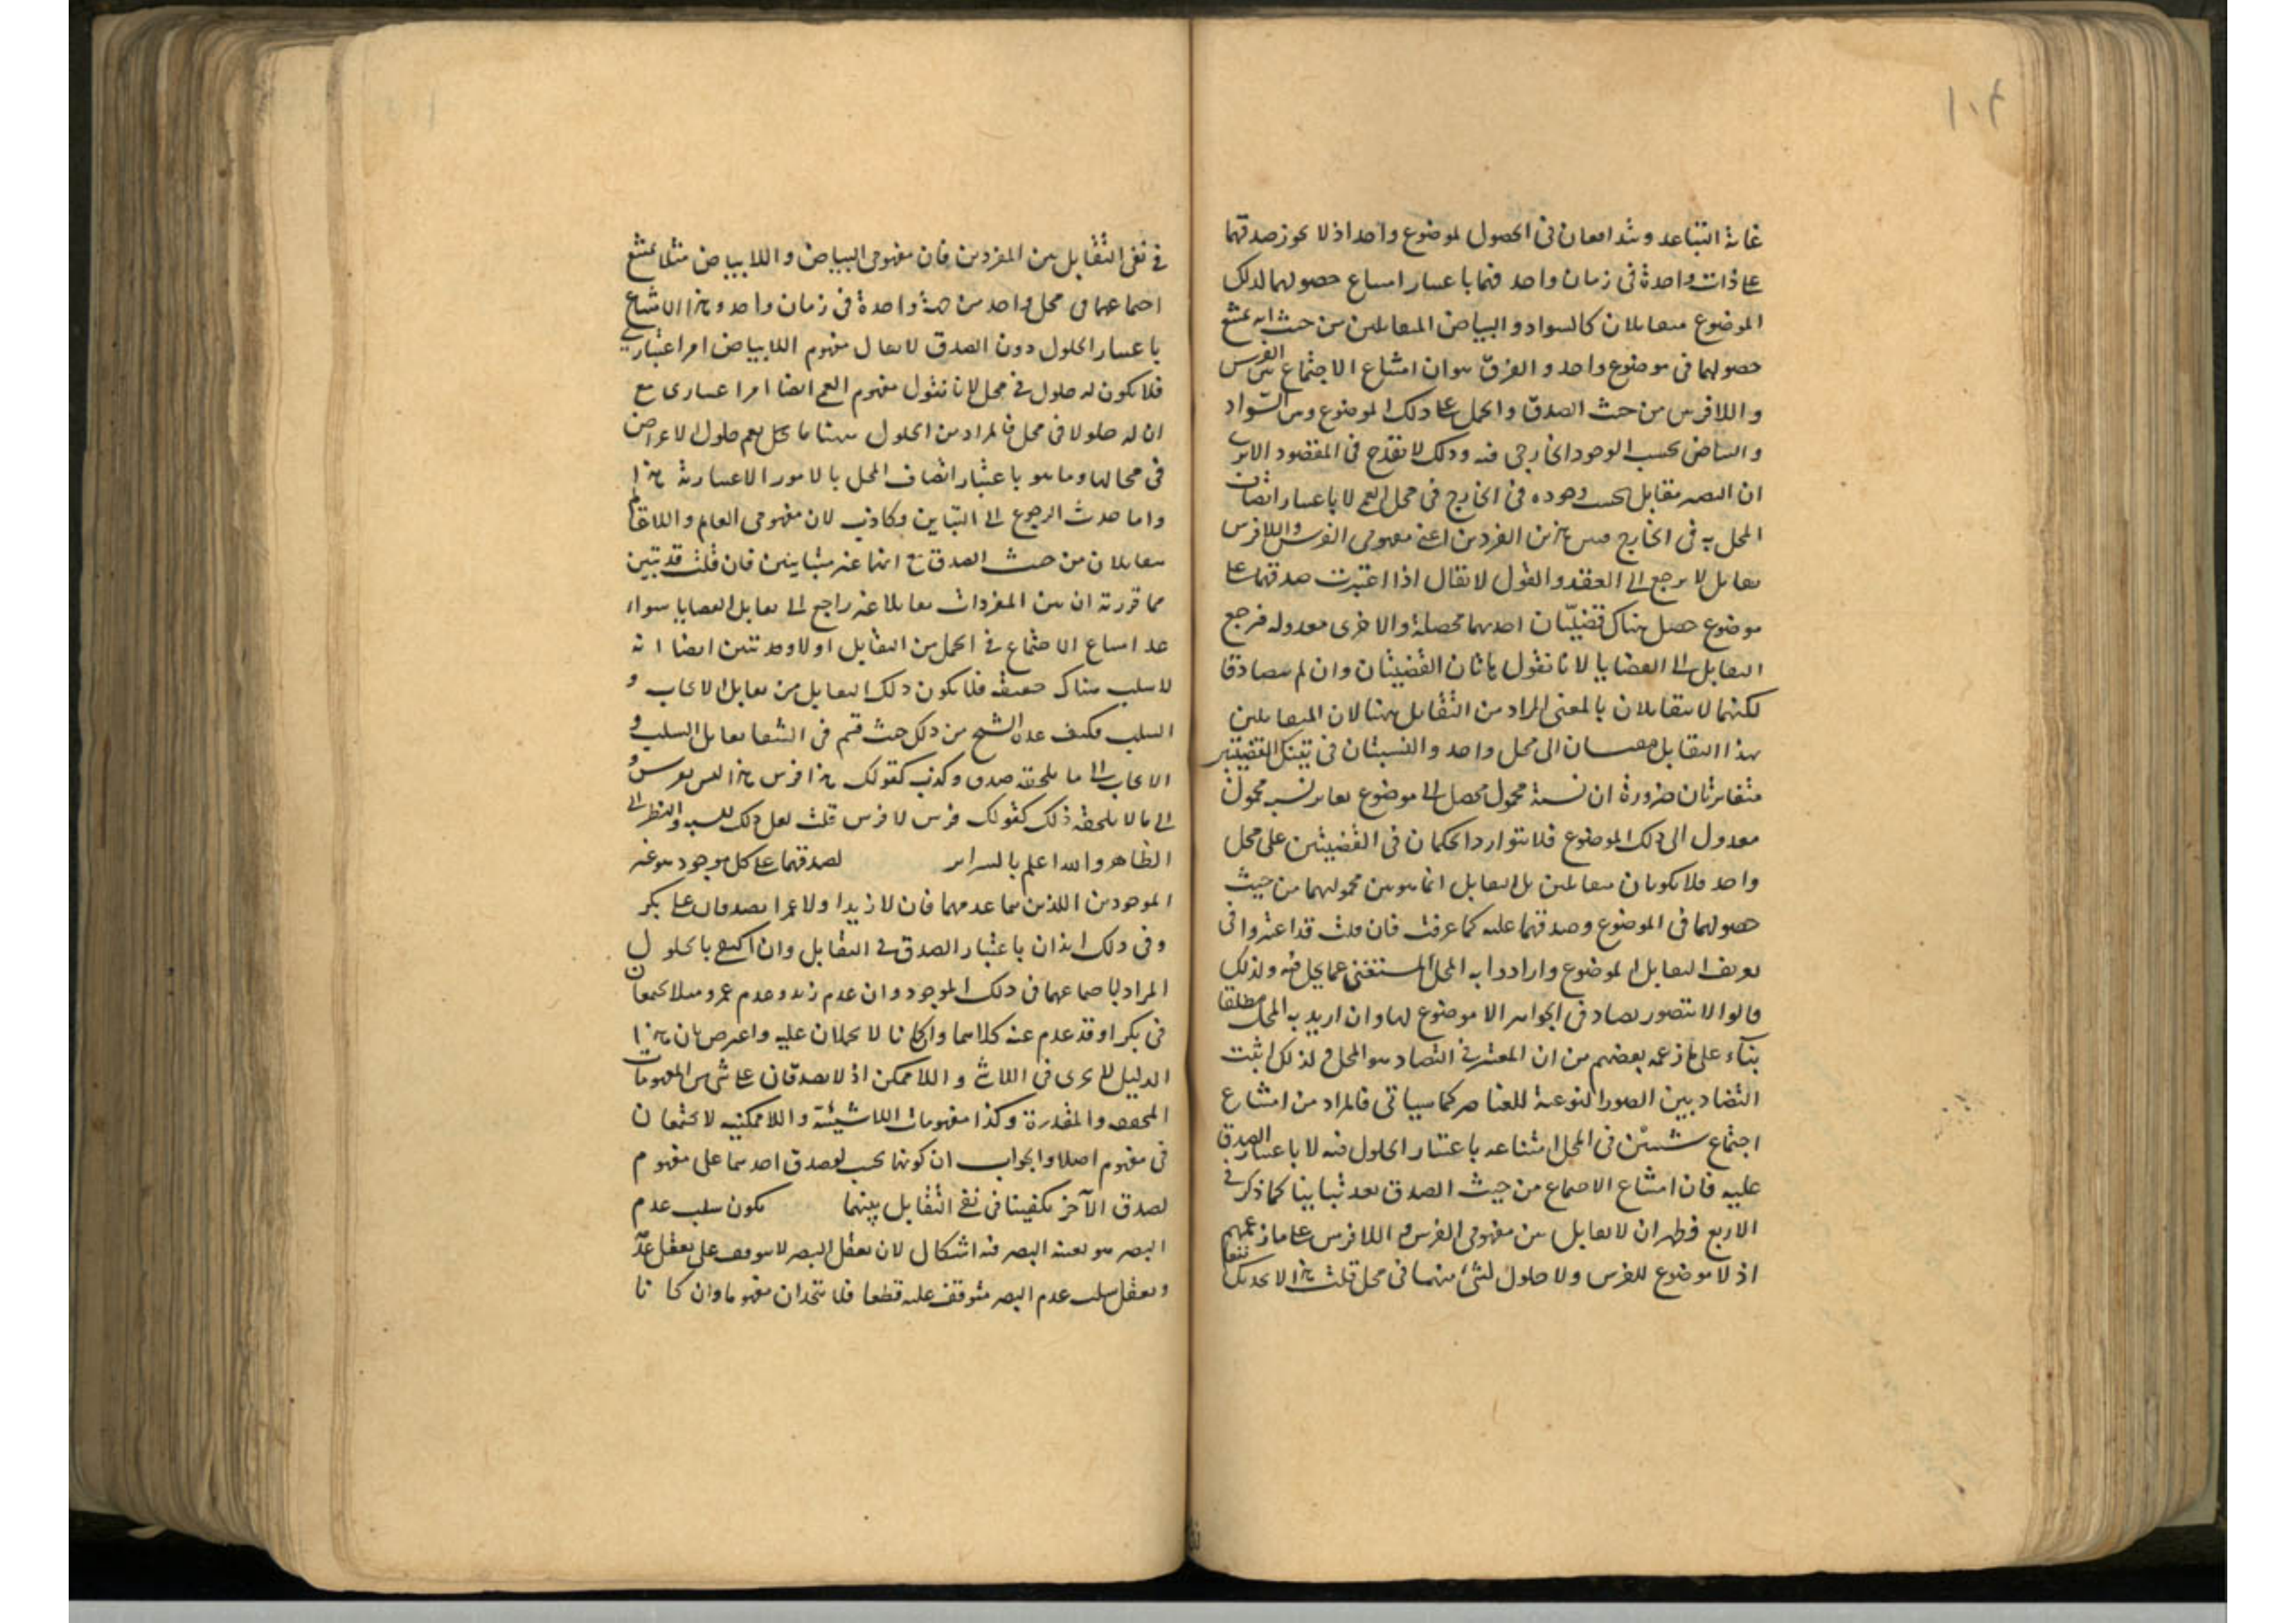 ١٠٤
غاية التباعد ومتدافعان فى الحصول لموضوع واحد اذ لا يجوز صدقهما
على ذات واحدة فى زمان واحد فهما باعتبار امتناع حصولهما لذلك
الموضوع متقابلان كالسواد والبياض المتقابلين من حيث انه يمتنع
حصولهما فى موضوع واحد والفرق هو ان امتناع الاجتماع بين الفرس
واللافرس من حيث الصدق والحمل على ذلك الموضوع وبين السواد
والبياض بحسب الوجود الخارجى فيه وذلك لا يقدح فى المقصود الا يرى
ان البصر مقابل بحسب وجوده فى الخارج فى محل العمى لا باعتبار اتصاف
المحل به فى الخارج فبين هذين المفردين اعنى مفهومى الفرس واللافرس
تقابل لا يرجع الى العقد والقول لا يقال اذا اعتبرت صدقهما على
موضوع حصل هناك قضيّتان احديهما محصلة والاخرى معدولة فرجع
التقابل الى القضايا لانا نقول هاتان القضيتان وان لم تتصادقا
لكنهما لا تتقابلان بالمعنى المراد من التقابل ههنا لان المتقابلين
بهذا التقابل الى محل واحد والنسبتان فى تينك القضيتين
متغايرتان ضرورة ان نسبة محمول محصل الى موضوع يغاير نسبة محمول
معدول الى ذلك الموضوع فلا يتوارد الحكمان فى القضيتين على محل
واحد فلا يكونان متقابلين بل التقابل انما هو بين محموليهما من حيث
حصولهما فى الموضوع وصدقهما عليه كما عرفت فان قلت قد اعتبروا فى
تعريف التقابل الموضوع وارادوا به المحل المستغنى عما يحل فيه ولذلك
قالوا لا يتصور تضاد فى الجواهر اذ لا موضوع لها وان اريد به المحل مطلقا
بناء على ما زعمه بعضهم من ان المعتبر فى التضاد هو المحل فلذلك اثبت
التضاد بين الصور النوعية للعناصر كما سياتى فالمراد من امتناع
اجتماع شيئين فى المحل امتناعه باعتبار الحلول فيه لا باعتبار الصدق
عليه فان امتناع الاجتماع من حيث الصدق يعد تباينا كما ذكر فى
الاربع فظهر ان لا تقابل بين مفهومى الفرس واللافرس على ما زعمهم
اذ لا موضوع للفرس ولا حلول لشئ منهما فى محل قلت هذا لا يجديك نفعا
فى نفى التقابل بين المفردين فان مفهومى البياض واللابياض مثلا يمتنع
اجتماعهما فى محل واحد من جهة واحدة فى زمان واحد وهذا الامتناع
باعتبار الحلول دون الصدق لا يقال مفهوم اللابياض امر اعتبارى
فلا يكون له حلول فى محل لانا نقول مفهوم العمى ايضا امر اعتبارى مع
ان له حلولا فى محل فالمراد من الحلول ههنا ما يعم حلول الاعراض
فى محالها وما هو باعتبار اتصاف المحل بالامور الاعتبارية هذا
واما حديث الرجوع الى التباين فكاذب لان مفهومى العالم واللاعالم
متقابلان من حيث الصدق مع انهما غير متباينين فان قلت قد تبين
مما قررته ان بين المفردات تقابلا غير راجع الى تقابل القضايا سواء
عد امتناع الاجتماع فى الحمل من التقابل او لا وقد تبين ايضا انه
لا سلب هناك حقيقة فلا يكون ذلك التقابل من تقابل الايجاب و
السلب فكيف عده الشيخ من ذلك حيث قسم فى الشفا تقابل السلب و
الايجاب الى ما يلحقه صدق وكذب كقولك هذا فرس هذا ليس بفرس و
الى ما لا يلحقه ذلك كقولك فرس لا فرس قلت لعل ذلك والنظر الى
الظاهر والله اعلم بالسراير لصدقهما على كل موجود هو غير
الموجودين اللذين هما عدمهما فان لا زيدا ولا عمرا يصدقان على بكر
وفى ذلك ايذان باعتبار الصدق فى التقابل وان اكتفى بالحلول
المراد باجتماعهما فى ذلك الموجود وان عدم زيد وعدم عمرو مثلا يجتمعان
فى بكر اذ قد عدم عنه كلاهما وان كانا لا يحملان عليه واعترض بان هذا
الدليل لا يجرى فى اللاشئ واللاممكن اذ لا يصدقان على شئ من المفهومات
المحققة والمقدرة وكذا مفهومات اللاشيئية واللاممكنية لا يجتمعان
فى مفهوم اصلا والجواب ان كونهما بحيث لو صدق احدهما على مفهوم
لصدق الآخر يكفينا فى نفى التقابل بينهما يكون سلب عدم
البصر هو بعينه البصر فيه اشكال لان تعقل البصر لا يتوقف على تعقل عدمه
وتعقل سلب عدم البصر متوقف عليه قطعا فلا يتحدان مفهوما وان كانا